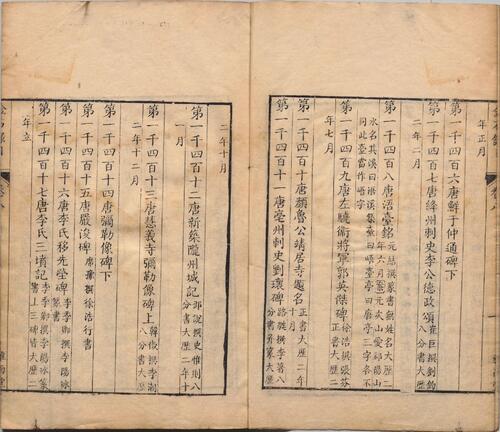 年正月
第一千四百六唐鮮于仲通碑下
年二月
第一千四百七唐絳州刺史李公德政頌 崔巨撰劉鈞
第一千四百八唐浯臺銘 元結撰篆書無姓名大歷二
年六月
水名其溪曰浯溪
同此臺當作峿字
第一千四百九唐左驍衛將軍郭英傑碑 徐浩撰張芬
正書大歷二
年七月
第一千四百十唐顏魯公靖居寺題名 正書大歷二年
十月
第一千四百十一唐亳州刺史劉瓌碑
分書
大歷
二年十月
第一千四百十二唐新築隴州城記 郎說撰史惟則八
分書大歷二年十
一月
第一千四百十三唐慈義寺彌勒像碑上 韓俊撰李
八分書大歷
二年十二月
第一千四百十四唐彌勒像碑下
第一千四百十五唐嚴浚碑 席豫撰徐浩行書
第一千四百十六唐李氏移先塋碑 李季卿撰李陽冰
篆書
第一千四百十七唐李氏三墳記 李季卿撰李陽冰篆
書上三碑皆大歷二
年立